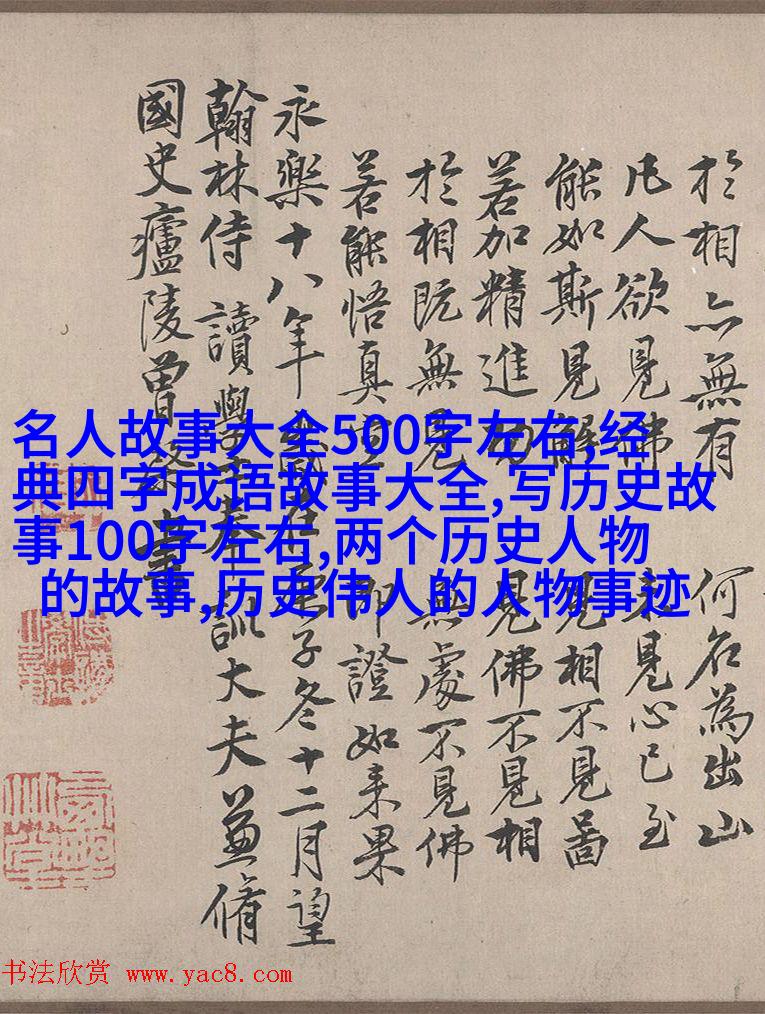 於相亦無有 何名為出山
凡人欲見佛 未見心已至
能如斯見解 見相不見啚
若加精進功 見佛不見相
於相既無見 無處不見佛
若能悟真空 即證如来果
永樂十八年歲在庚子冬十二月望
翰林侍讀學士奉訓大夫兼脩
國史廬陵曾棨書
名人故事大全500字左右,经
典四字成语故事大全,写历史故
事100字左右,两个历史人物
的故事,历史伟人的人物事迹
书法欣赏 www.yac8.com